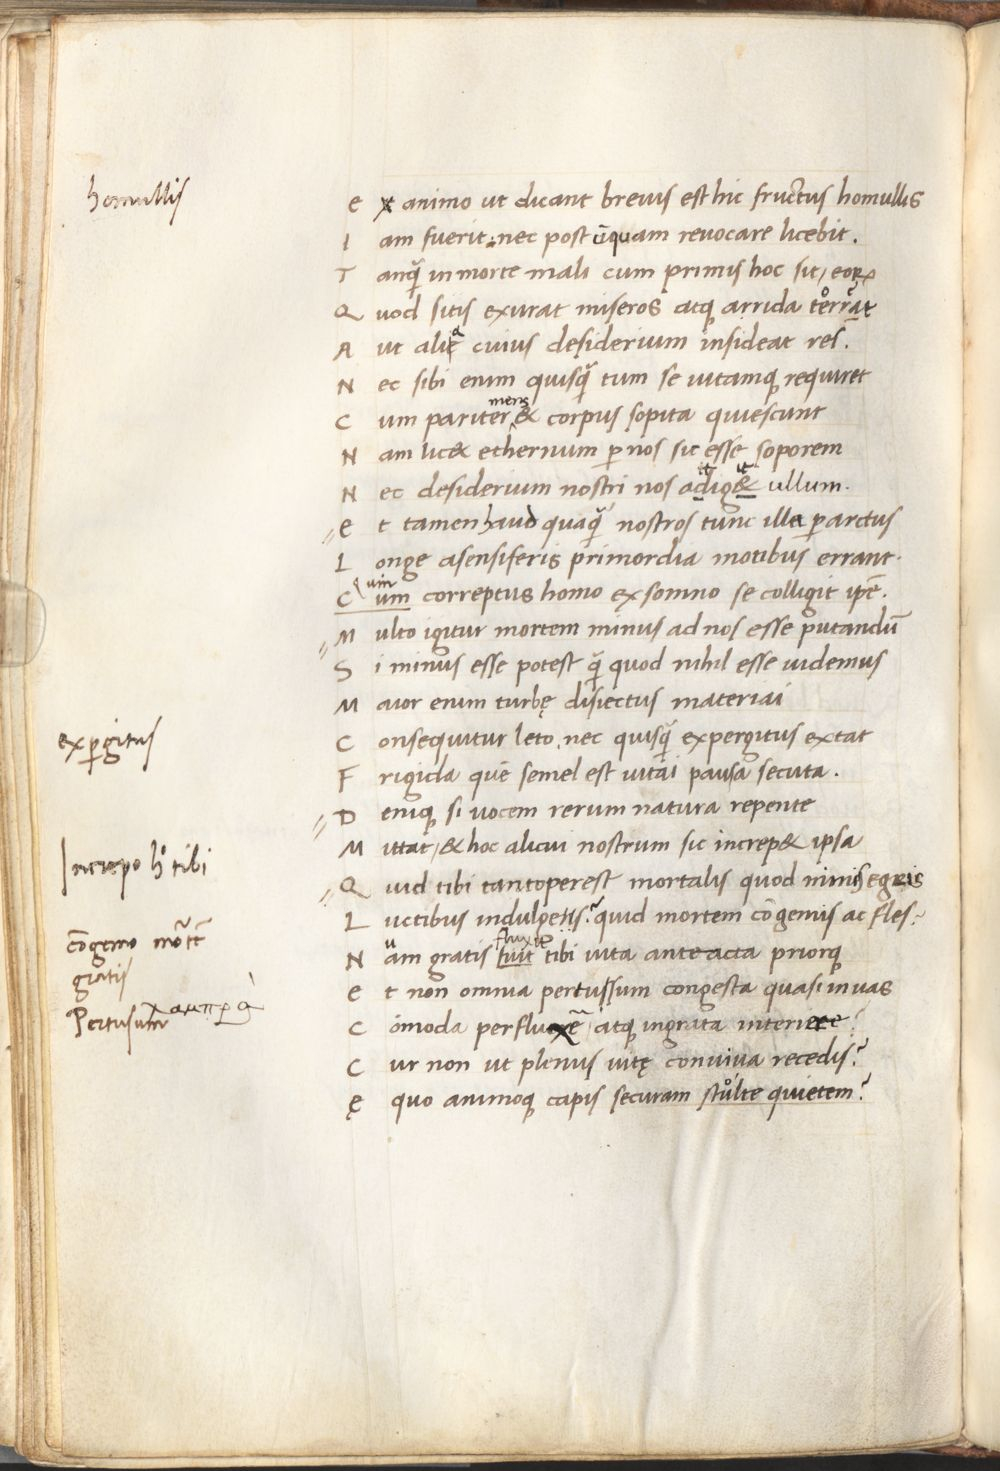 homullis
ex animo ut dicant brevis est hic fructus homullis
Iam fuerit: nec post ūquam revocare licebit.
Tanq̃ in morte mali cum primis hoc sit, eoꝝ
Quod sitis exurat miseros atq; arrida torrat
Aut aliae cuius desiderium insideat rei.
Nec sibi enim quisq̃ tum se uitamq; requiret
mens
Cum pariter & corpus sopita quiescunt
Nam lic& ethernum ꝑ nos sic esse soporem
it it
Nec desiderium nostri nos adig& ullum.
et tamen haud quaq̃ nostros tunc illa ꝑ arctus
Longe asensiferis primordia motibus errant.
Quin
Cum correptus homo ex somno se colligit ip̄e.
Multo igitur mortem minus ad nos esse putandū
Si minus esse potest q̃ quod nihil esse uidemus
Maior enim turbę disiectus materiai
expgitus
Consequitur leto, nec quisq̃ expergitus extat
Frigida quē semel est uitai pausa secuta.
Deniq; si uocem rerum natura repente
Increpo h° tibi
Mittat, & hoc alicui nostrum sic increp& ipsa
Quid tibi tantoperest mortalis quod nimis egris
Luctibus indulgetis? quid mortem cōgemis ac fles?
cōgemo mōrtē
fluxit
Nam gratis fuit tibi uita anteacta priorq;
gratis
et non omnia pertussum congesta quasi in uas
Pertusum
Cōmoda perfluxē, atq; ingrata interiere?
Cur non ut plenus uitę conuiua recedis?
ęquo animoq; capis securam stulte quietem?